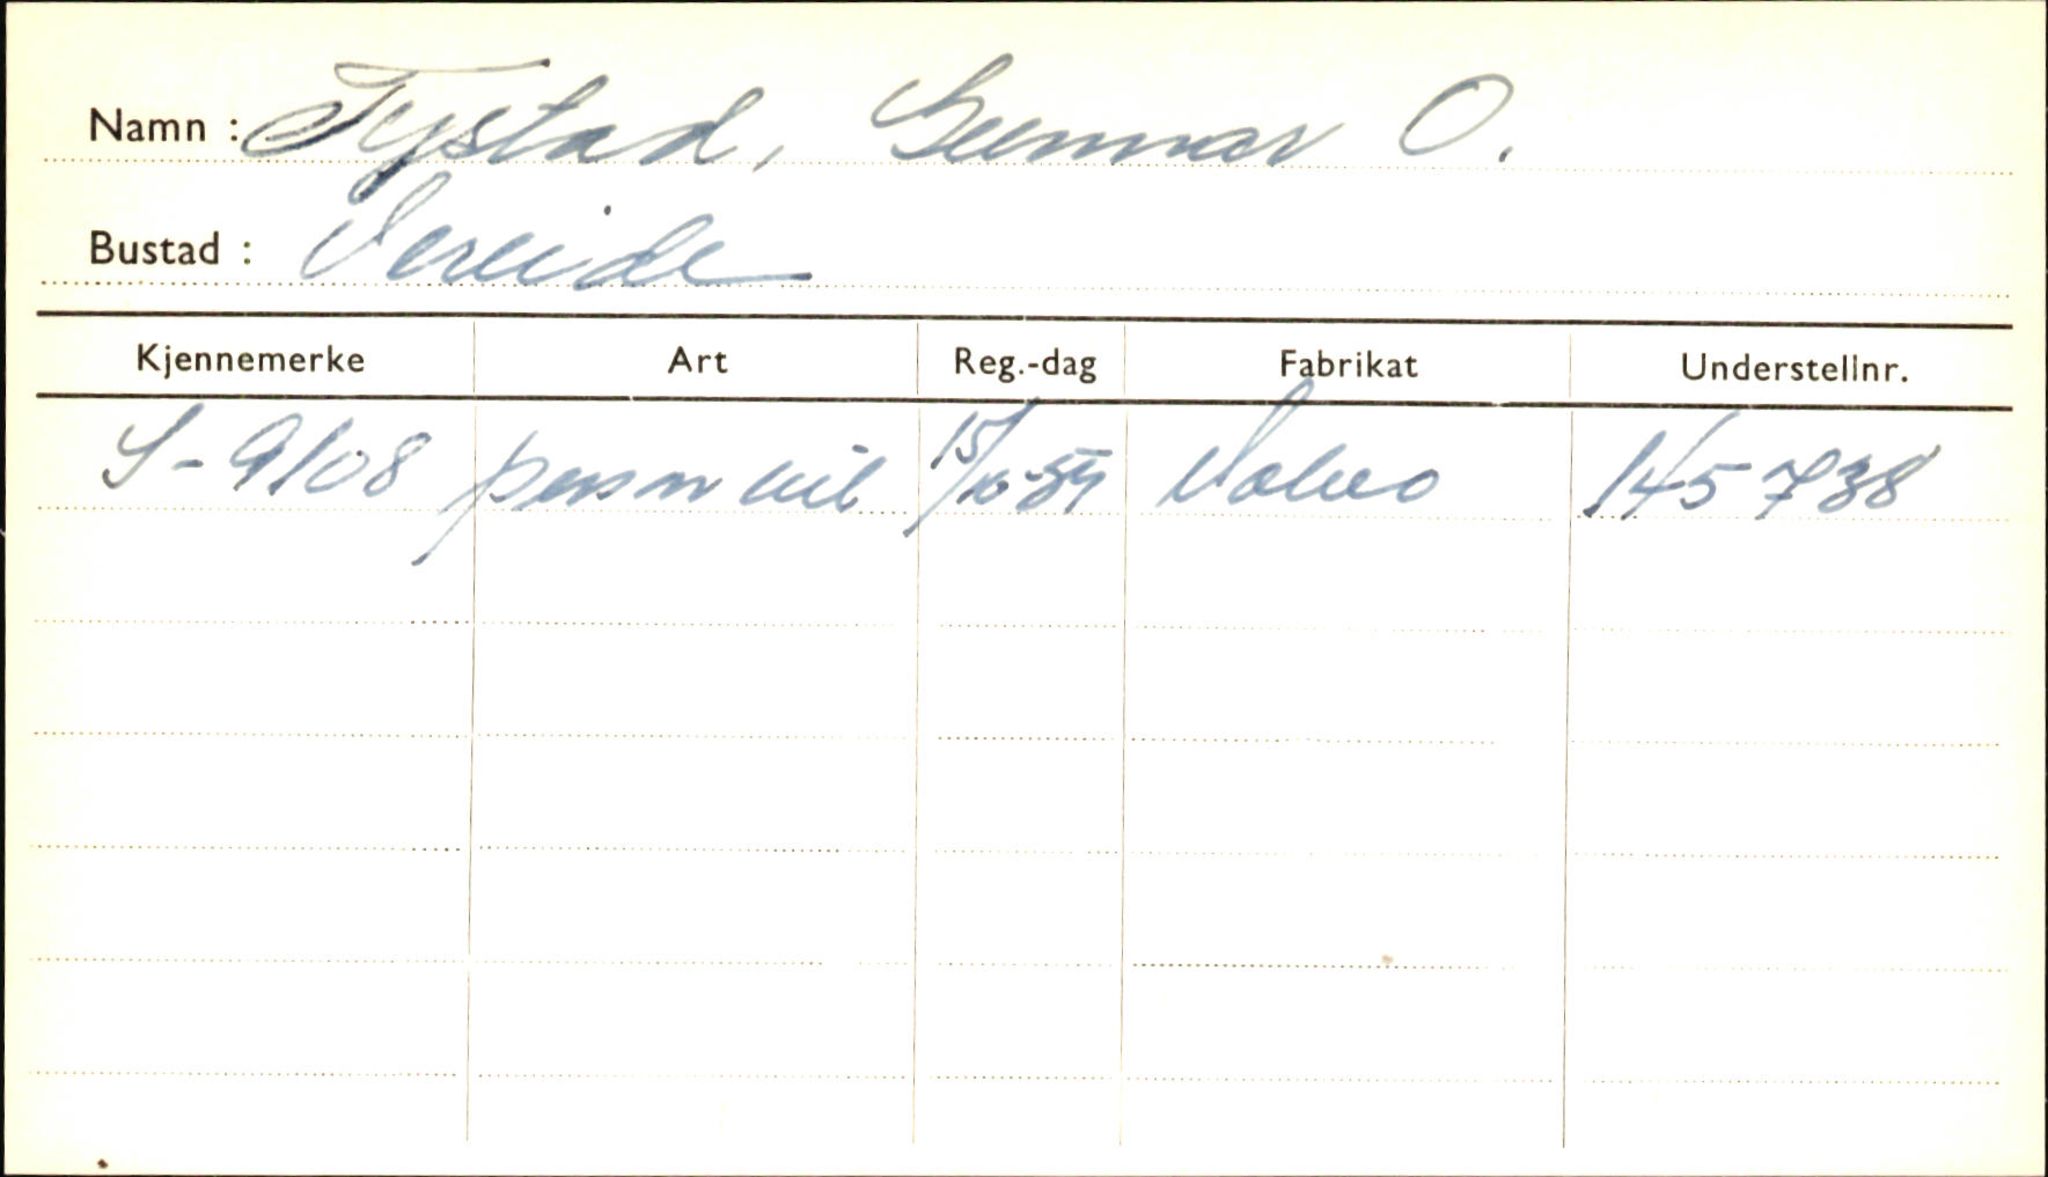 Namn : Tystad, Gunnar O.
Bustad : Vereide
Kjennemerke Art Reg.-dag Fabrikat Understellnr.
S-9108 personbil 15/10-59 Volvo 145738